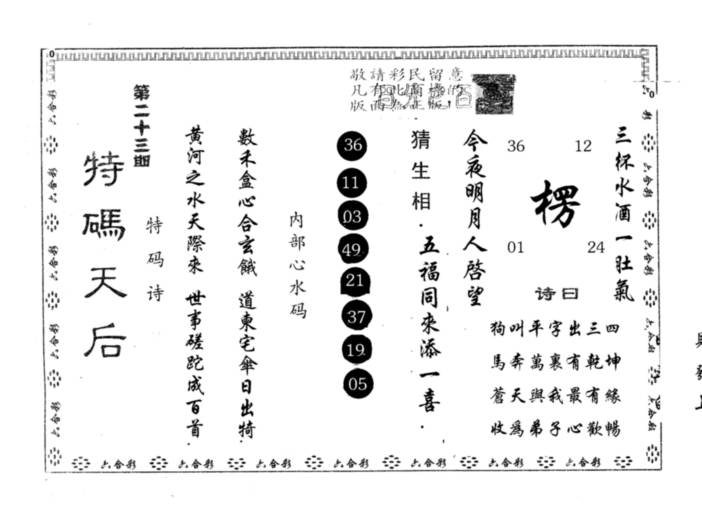 敬請彩民留意
第二十三期
特碼天后
特码诗
黄河之水天際來 世事磋跎成百首.
數禾盒心合玄餓 道東宅傘日出犄
内部心水码
36
11
03
49
21
37
19
05
猜生相.五福同來添一喜.
今夜明月人啓望
36 12
楞
01 24
诗曰
四坤緣暢
三乾有歡
出有最心
字裏我子
平萬與弟
叫奔天爲
狗馬蒼收
三杯水酒一肚氣
六合彩 六合彩 六合彩 六合彩 六合彩 六合彩 六合彩